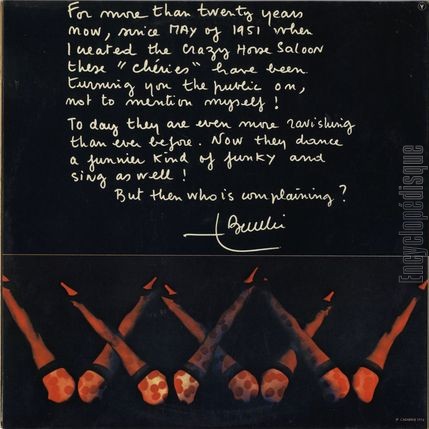 For more than twenty years
now, since MAY of 1951 when
I created the Crazy Horse Saloon
these "chéries" have been
turning you the public on,
not to mention myself !
To day they are even more ravishing
than ever before. Now they dance
a funnier kind of funky and
sing as well !
But then who is complaining ?
Encyclopédisque